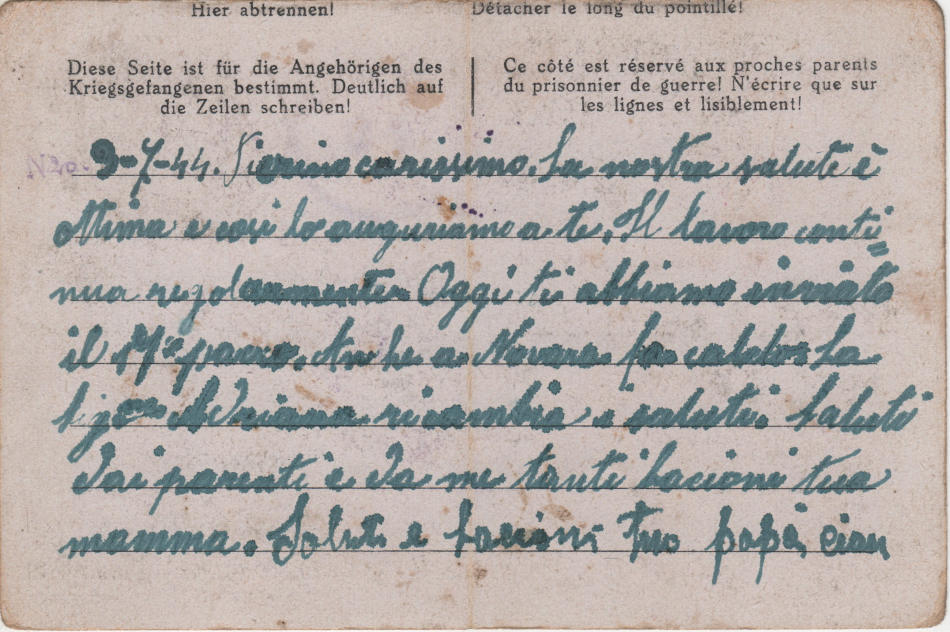 Hier abtrennen!
Détacher le long du pointillé!
Diese Seite ist für die Angehörigen des
Kriegsgefangenen bestimmt. Deutlich auf
die Zeilen schreiben!
Ce côté est réservé aux proches parents
du prisonnier de guerre! N'écrire que sur
les lignes et lisiblement!
3-7-44. Pierino carissimo. La nostra salute è
ottima e così lo auguriamo a te. Il lavoro conti=
nua regolarmente. Oggi ti abbiamo inviato
il 17° pacco. Anche a Novara fa caldo. La
Adriana ricambia i saluti. Saluti
dai parenti e da me tanti bacioni tua
mamma. Saluti e bacioni tuo papà, ciau